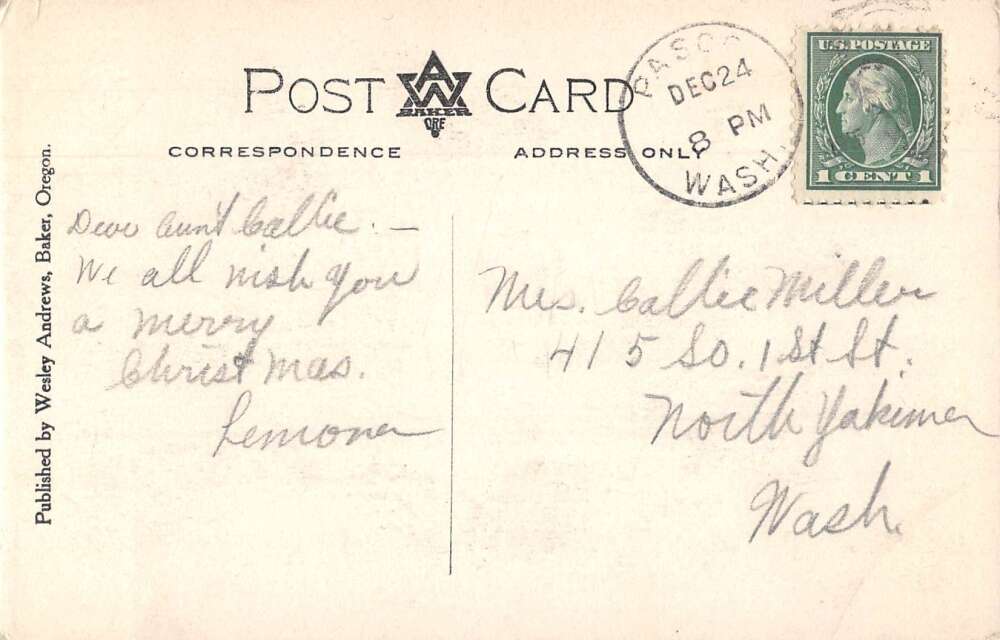 POST CARD
AW
BAKER
ORE
CORRESPONDENCE
ADDRESS ONLY
PASCO
DEC 24
8 PM
WASH.
U.S. POSTAGE
1 CENT 1
Published by Wesley Andrews, Baker, Oregon.
Dear Aunt Callie:—
We all wish you
a merry
Christmas.
Lemona
Mrs. Callie Miller
415 So. 1st St.
North Yakima
Wash.